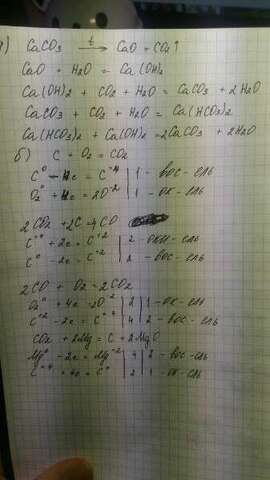 а) CaCO3 t→ CaO + CO2↑
CaO + H2O = Ca(OH)2
Ca(OH)2 + CO2 + H2O = CaCO3 + 2H2O
CaCO3 + CO2 + H2O = Ca(HCO3)2
Ca(HCO3)2 + Ca(OH)2 = 2CaCO3 + 2H2O
б) C + O2 = CO2
C⁰ - 4e = C⁺⁴ | 1 - вос-ель
O2⁰ + 4e = 2O⁻² | 1 - ок-ль
2CO2 + 2C = 4CO
C⁺⁴ + 2e = C⁺² | 2 - окис-ель
C⁰ - 2e = C⁺² | 2 - вос-ель
2CO + O2 = 2CO2
O2⁰ + 4e = 2O⁻² | 2 | 1 - ок-ель
C⁺² - 2e = C⁺⁴ | 4 | 2 - вос-ель
CO2 + 2Mg = C + 2MgO
Mg⁰ - 2e = Mg⁺² | 4 | 2 - вос-ель
C⁺⁴ + 4e = C⁰ | 2 | 1 - ок-ель